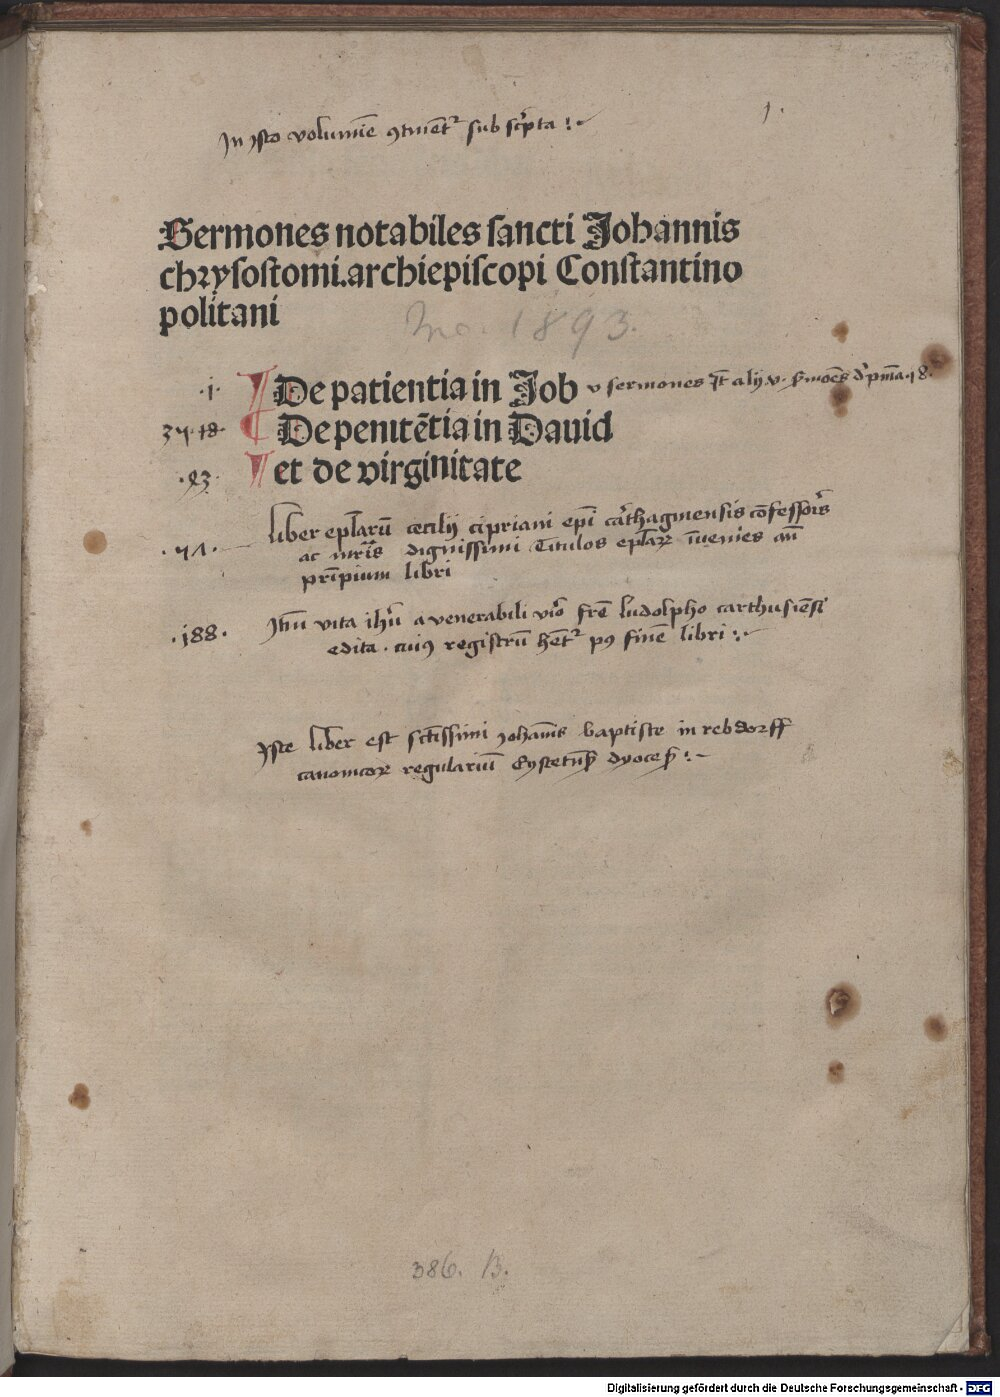 1.
In isto volumīe ꝯtinēt᷑ sub sc͛pta :~
Sermones notabiles sancti Johannis
chrysostomi.archiepiscopi Constantino
politani
No. 1893.
.1. De patientia in Job v sermones
37 . 18. De penitētia in Dauid
.93. et de virginitate
.71. Liber epl̄arū cecilij cipriani ep̄i carthaginensis cōfessoris
ac mr̄is dignissimi Titulos epl̄aꝝ īuenies an̄
prīcipium libri
.188. Itē vita ihū a venerabili viro fr̄e ludolpho carthusiēsi
edita . cuiꝰ registrū hēt᷑ pꝰ finē libri :~
Iste liber est sctīssimi Johānis baptiste in rebdorff
canonicoꝝ regulariū Eystetn̄ dyoces̄ :~
386. B.
Digitalisierung gefördert durch die Deutsche Forschungsgemeinschaft - DFG